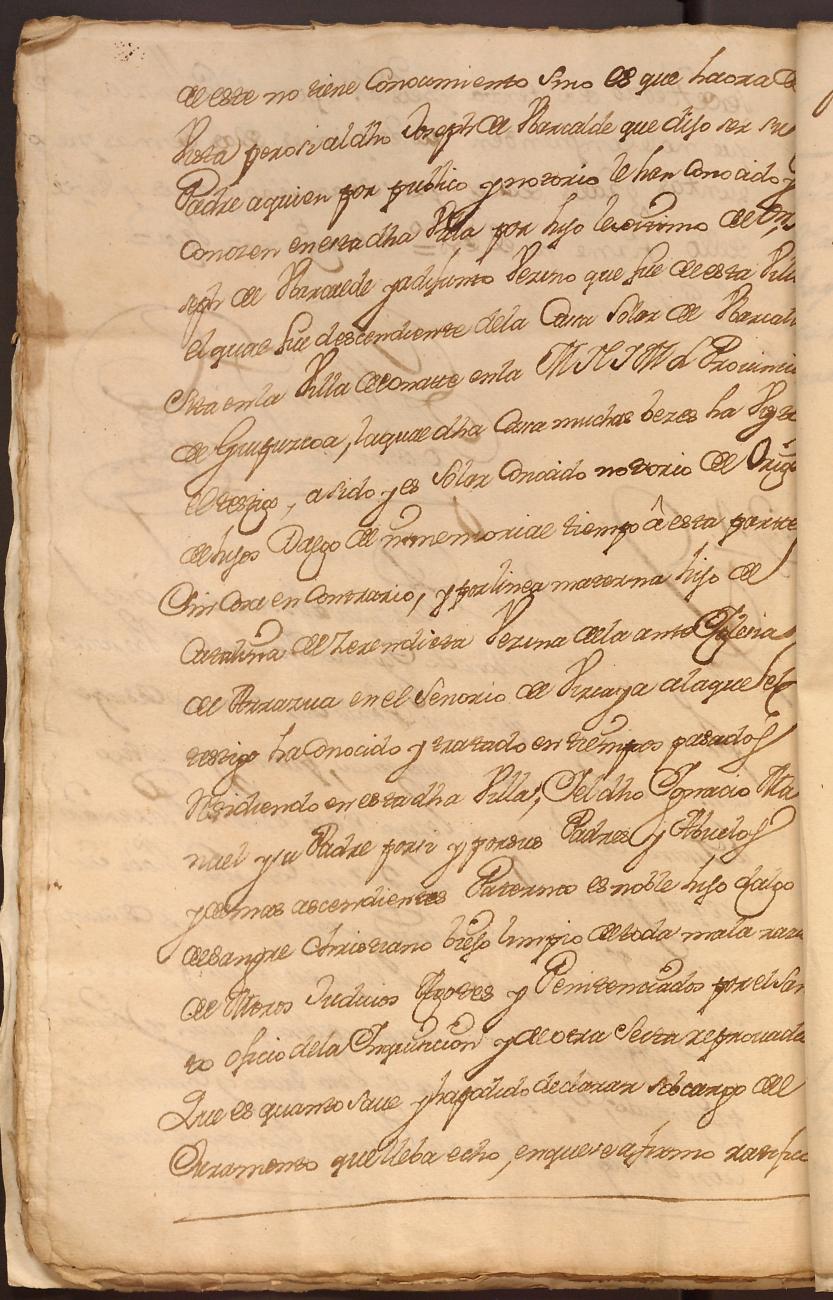 de este no tiene Conocimiento sino es que haora de
Vista pero si al dho Joseph de Barcalde que dijo ser su
Padre aquien por publico y notorio le han Conocido y
Conozen en esta dha Villa por hijo lexitimo de
seph de Barcalde ya difunto Vezino que fue de esta Villa
el qual fue descendiente de la Casa Solar de Barcal
Sita en la Villa de Oñatte en la M N I M L Provincia
de Guipuzcoa, la qual dha Casa muchas bezes ha Visto
el testigo, a sido y es Solar Conocido notorio de Orig
de hijos Dalgo de ynmemorial tiempo â esta partte
Sin Cosa en Contrario, y por linea materna hijo de
Catalina de Zerendieta Vezina de la ante Iglesia
de Arrazua en el Señorio de Vizcaya a la que el
testigo ha Conocido y tratado en tiempos pasados
Residiendo en esta dha Villa; I el dho Ignacio Ma
nuel y su Padre por si y por sus Padres y Abuelos
y demas ascendientes Paternos es noble hijo dalgo
de sangre Christiano biejo limpio de toda mala raza
de Moros Judios Agotes y Penitenciados por el San
to oficio de la Inquisicion y de otra Secta reprovada
Que es quanto save y ha podido declarar so cargo del
Juramento que lleba echo, en que se afirmo ratifico